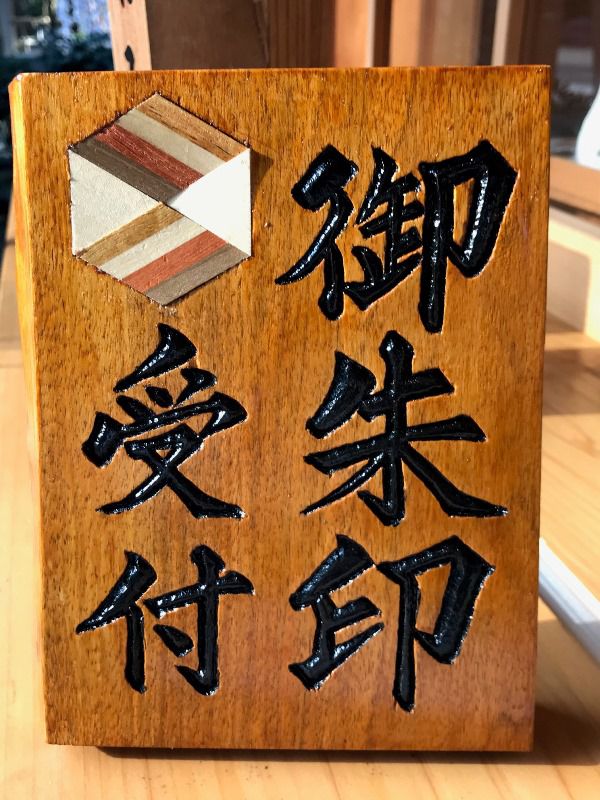 御朱印
受付